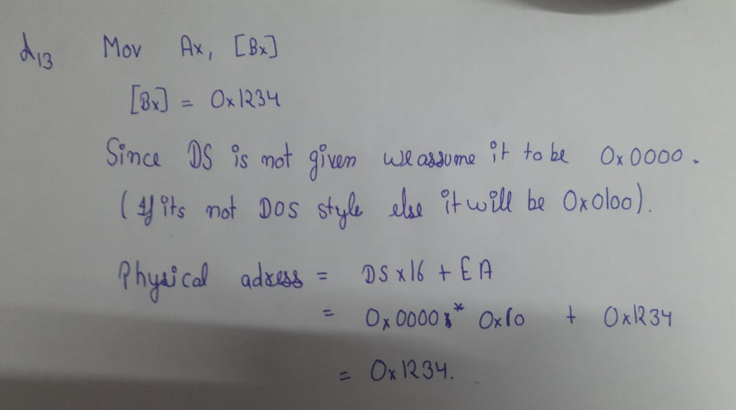 d13 Mov Ax, [Bx]
[Bx] = 0x1234
Since DS is not given we assume it to be 0x0000.
(If its not DOS style else it will be 0x0100).
Physical adress = DS x 16 + EA
= 0x0000 * 0x10 + 0x1234
= 0x1234.